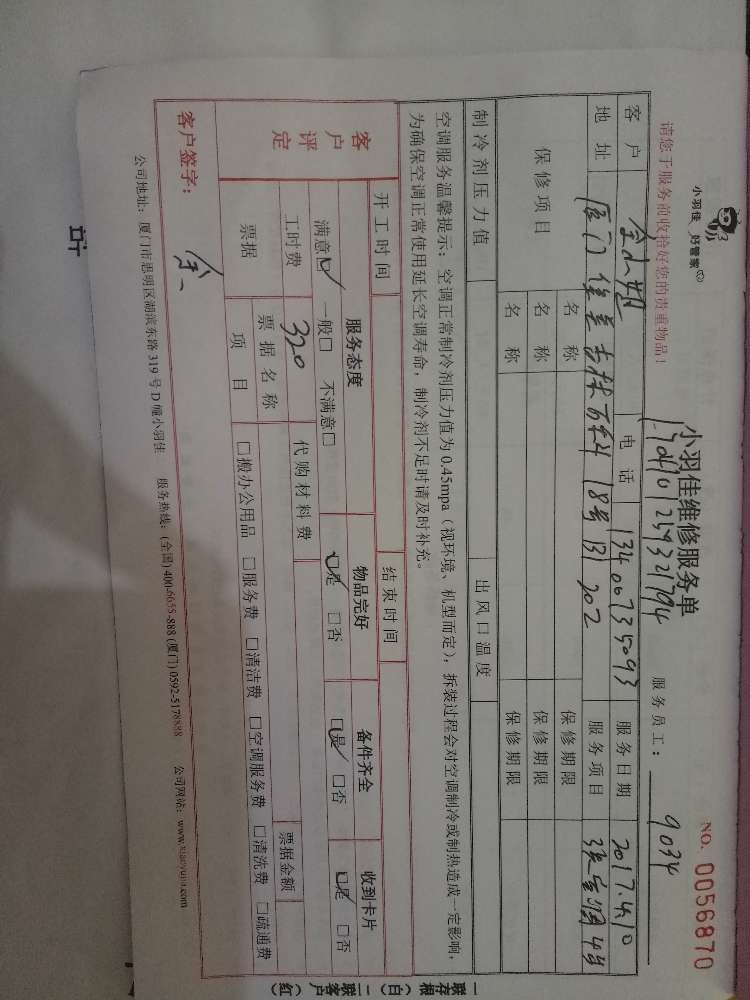 小羽佳 好管家
小羽佳维修服务单
NO. 0056870
请您于服务前收拾好您的贵重物品!
服务员工: 9034
客户 电话 13400735093 服务日期 2017.4.10
地址 厦门 18号 202 服务项目
保修项目 名称 保修期限
名称 保修期限
名称 保修期限
制冷剂压力值 出风口温度
空调服务温馨提示:空调正常制冷剂压力值为0.45mpa(视环境、机型而定),拆装过程会对空调制冷或制热造成一定影响,
为确保空调正常使用延长空调寿命,制冷剂不足时请及时补充。
开工时间 结束时间
客户评定 服务态度 物品完好 备件齐全 收到卡片
满意☑ 一般□ 不满意□ ☑是 □否 ☑是 □否 ☑是 □否
工时费 320 代购材料费
票据 票据名称 票据金额
项目 □搬办公用品 □服务费 □清洁费 □空调服务费 □清洗费 □疏通费
客户签字:
公司地址:厦门市思明区湖滨东路319号D幢小羽佳 服务热线:(全国)400-6655-888 (厦门)0592-5178888 公司网站:www.xiaoyujia.com
一联存根(白) 二联客户(红)